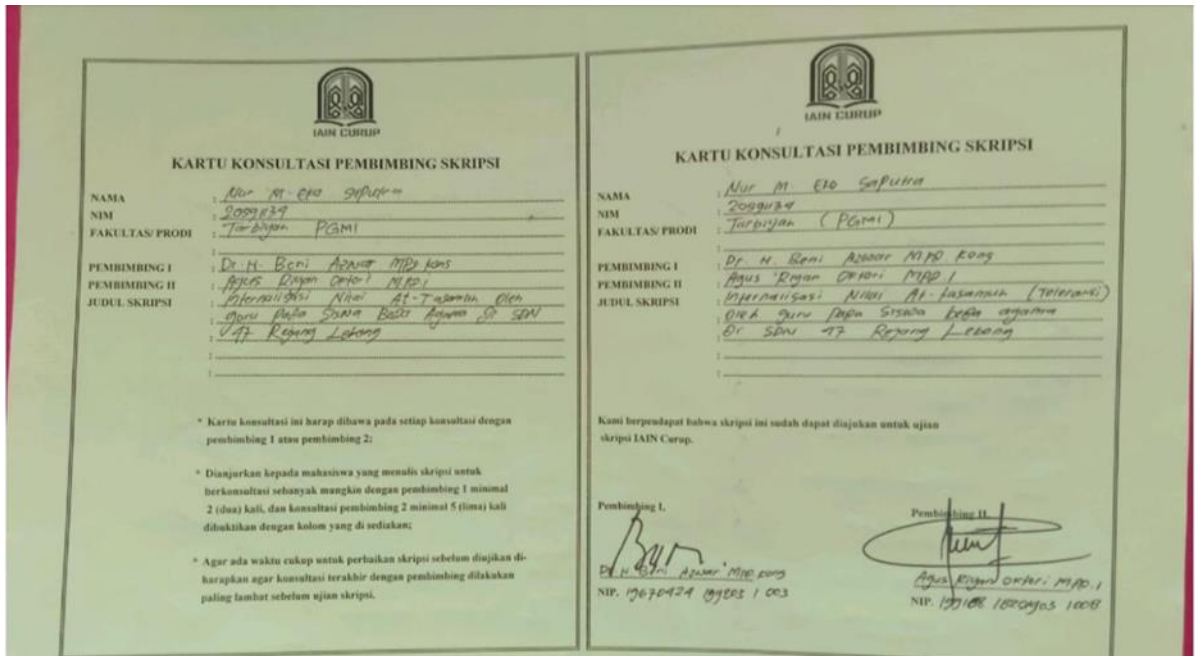 IAIN CURUP
KARTU KONSULTASI PEMBIMBING SKRIPSI
NAMA : Nur M. Eko Saputra
NIM :
FAKULTAS/ PRODI : Tarbiyah PGMI
:
PEMBIMBING I : Dr. H. Beni Azwar MPd Kons
PEMBIMBING II : Agus Riyan Oktori M.Pd.i
JUDUL SKRIPSI : Internalisasi Nilai At-Tasamuh Oleh
: guru pada Siswa Beda Agama Di SDN
: 17 Rejang Lebong
:
:
* Kartu konsultasi ini harap dibawa pada setiap konsultasi dengan
pembimbing 1 atau pembimbing 2;
* Dianjurkan kepada mahasiswa yang menulis skripsi untuk
berkonsultasi sebanyak mungkin dengan pembimbing 1 minimal
2 (dua) kali, dan konsultasi pembimbing 2 minimal 5 (lima) kali
dibuktikan dengan kolom yang di sediakan;
* Agar ada waktu cukup untuk perbaikan skripsi sebelum diujikan di-
harapkan agar konsultasi terakhir dengan pembimbing dilakukan
paling lambat sebelum ujian skripsi.
IAIN CURUP
KARTU KONSULTASI PEMBIMBING SKRIPSI
NAMA : Nur M. Eko Saputra
NIM :
FAKULTAS/ PRODI : Tarbiyah (PGMI)
:
PEMBIMBING I : Dr. H. Beni Azwar M.Pd. Kons
PEMBIMBING II : Agus Riyan Oktori M.Pd.I
JUDUL SKRIPSI : Internalisasi Nilai At-tasamuh (Toleransi)
: Oleh guru pada Siswa beda agama
: Di SDN 17 Rejang Lebong
:
:
Kami berpendapat bahwa skripsi ini sudah dapat diajukan untuk ujian
skripsi IAIN Curup.
Pembimbing I,
Dr. H. Beni Azwar M.Pd. Kons
NIP. 19670424 199203 1 003
Pembimbing II,
Agus Riyan Oktori M.Pd.I
NIP.